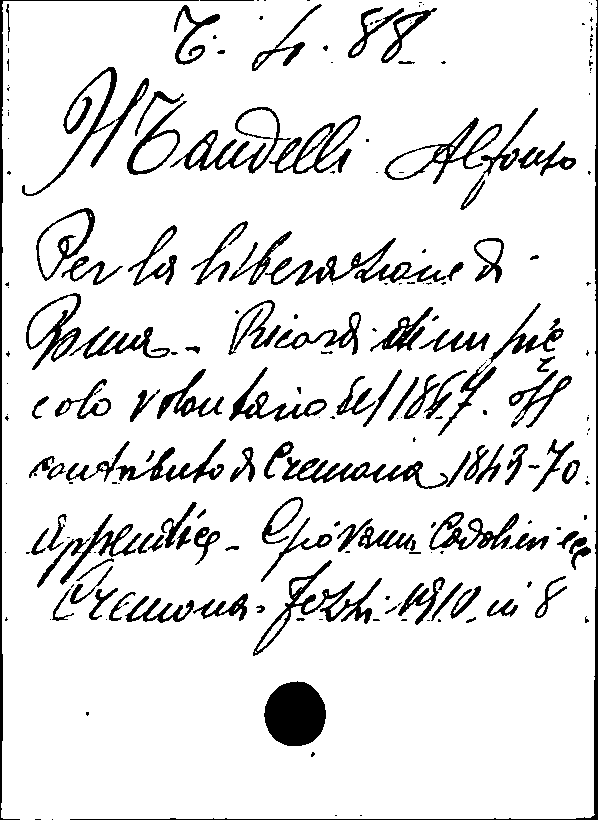 G. h. 88.
Mandelli Alfonso
Per la liberazione di
Roma - Ricordi di un pic
colo volontario del 1867.
contributo di Cremona 1849-70
appendice - Giovanni Cadolini ecc
Cremona. Fezzi 1910 in 8